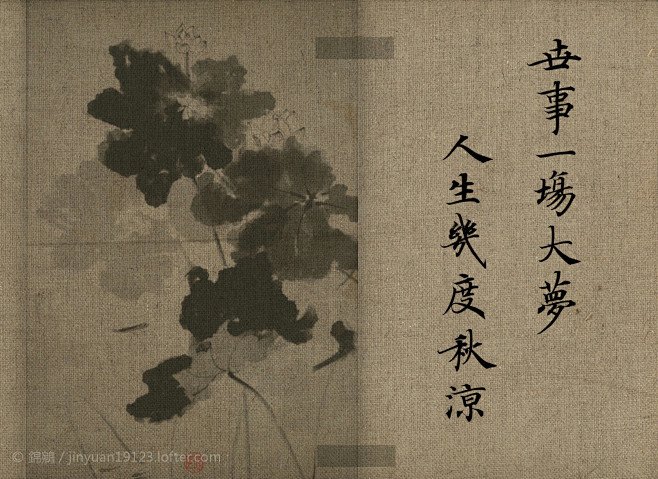 世事一場大夢
人生幾度秋涼
© 錦鷂 / jinyuan19123.lofter.com